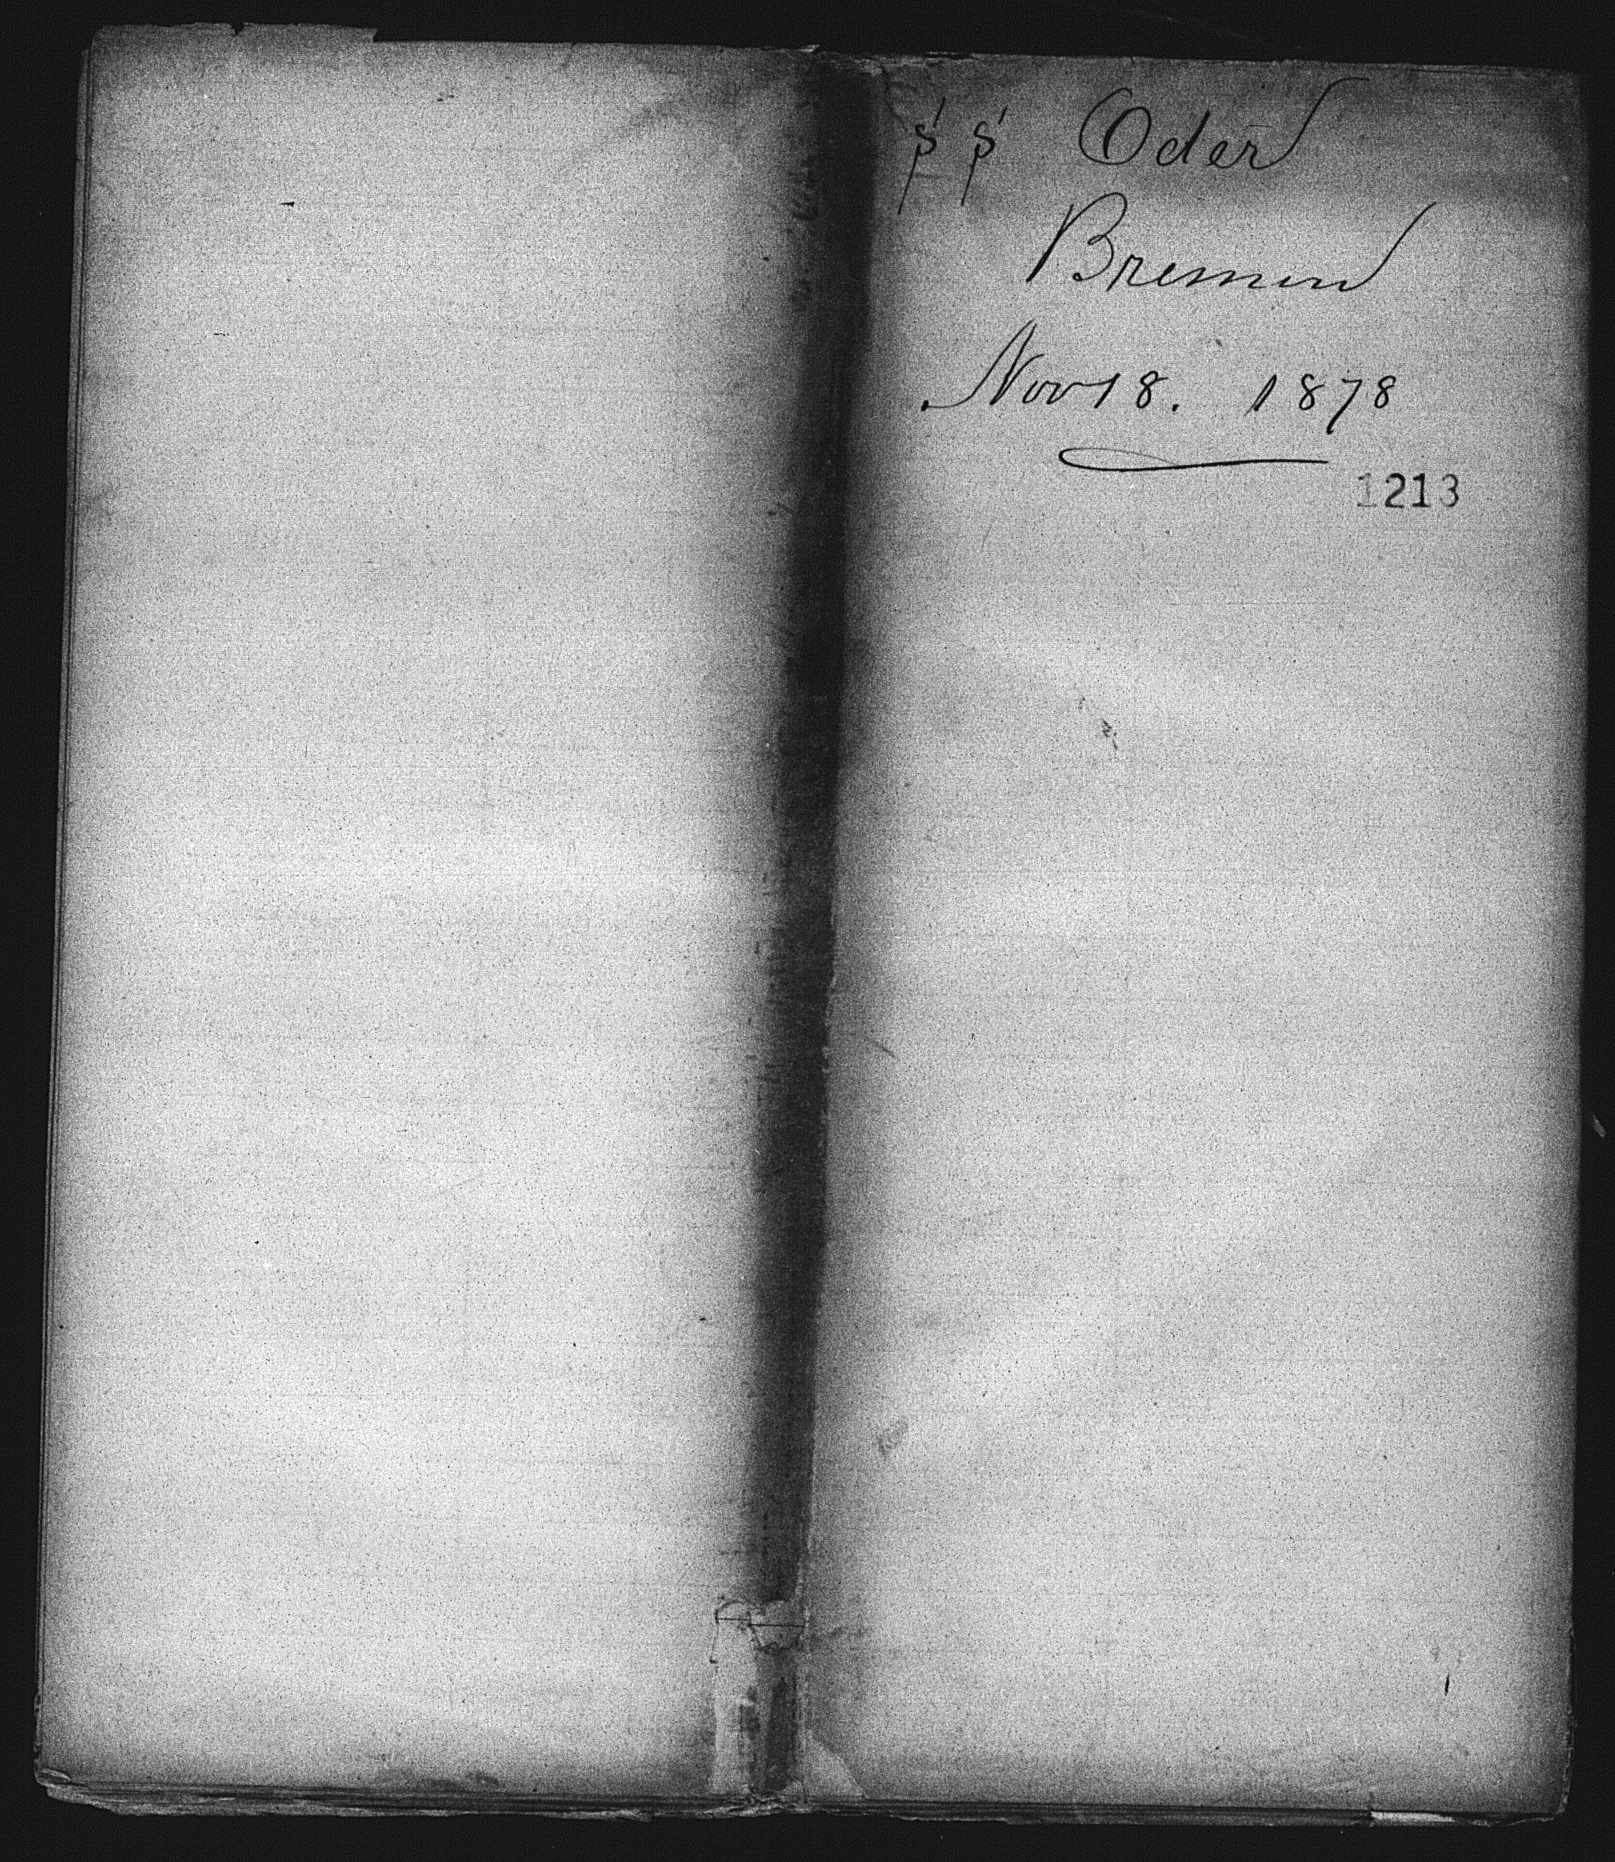 S S Oder
Bremen
Nov 18. 1878
1213